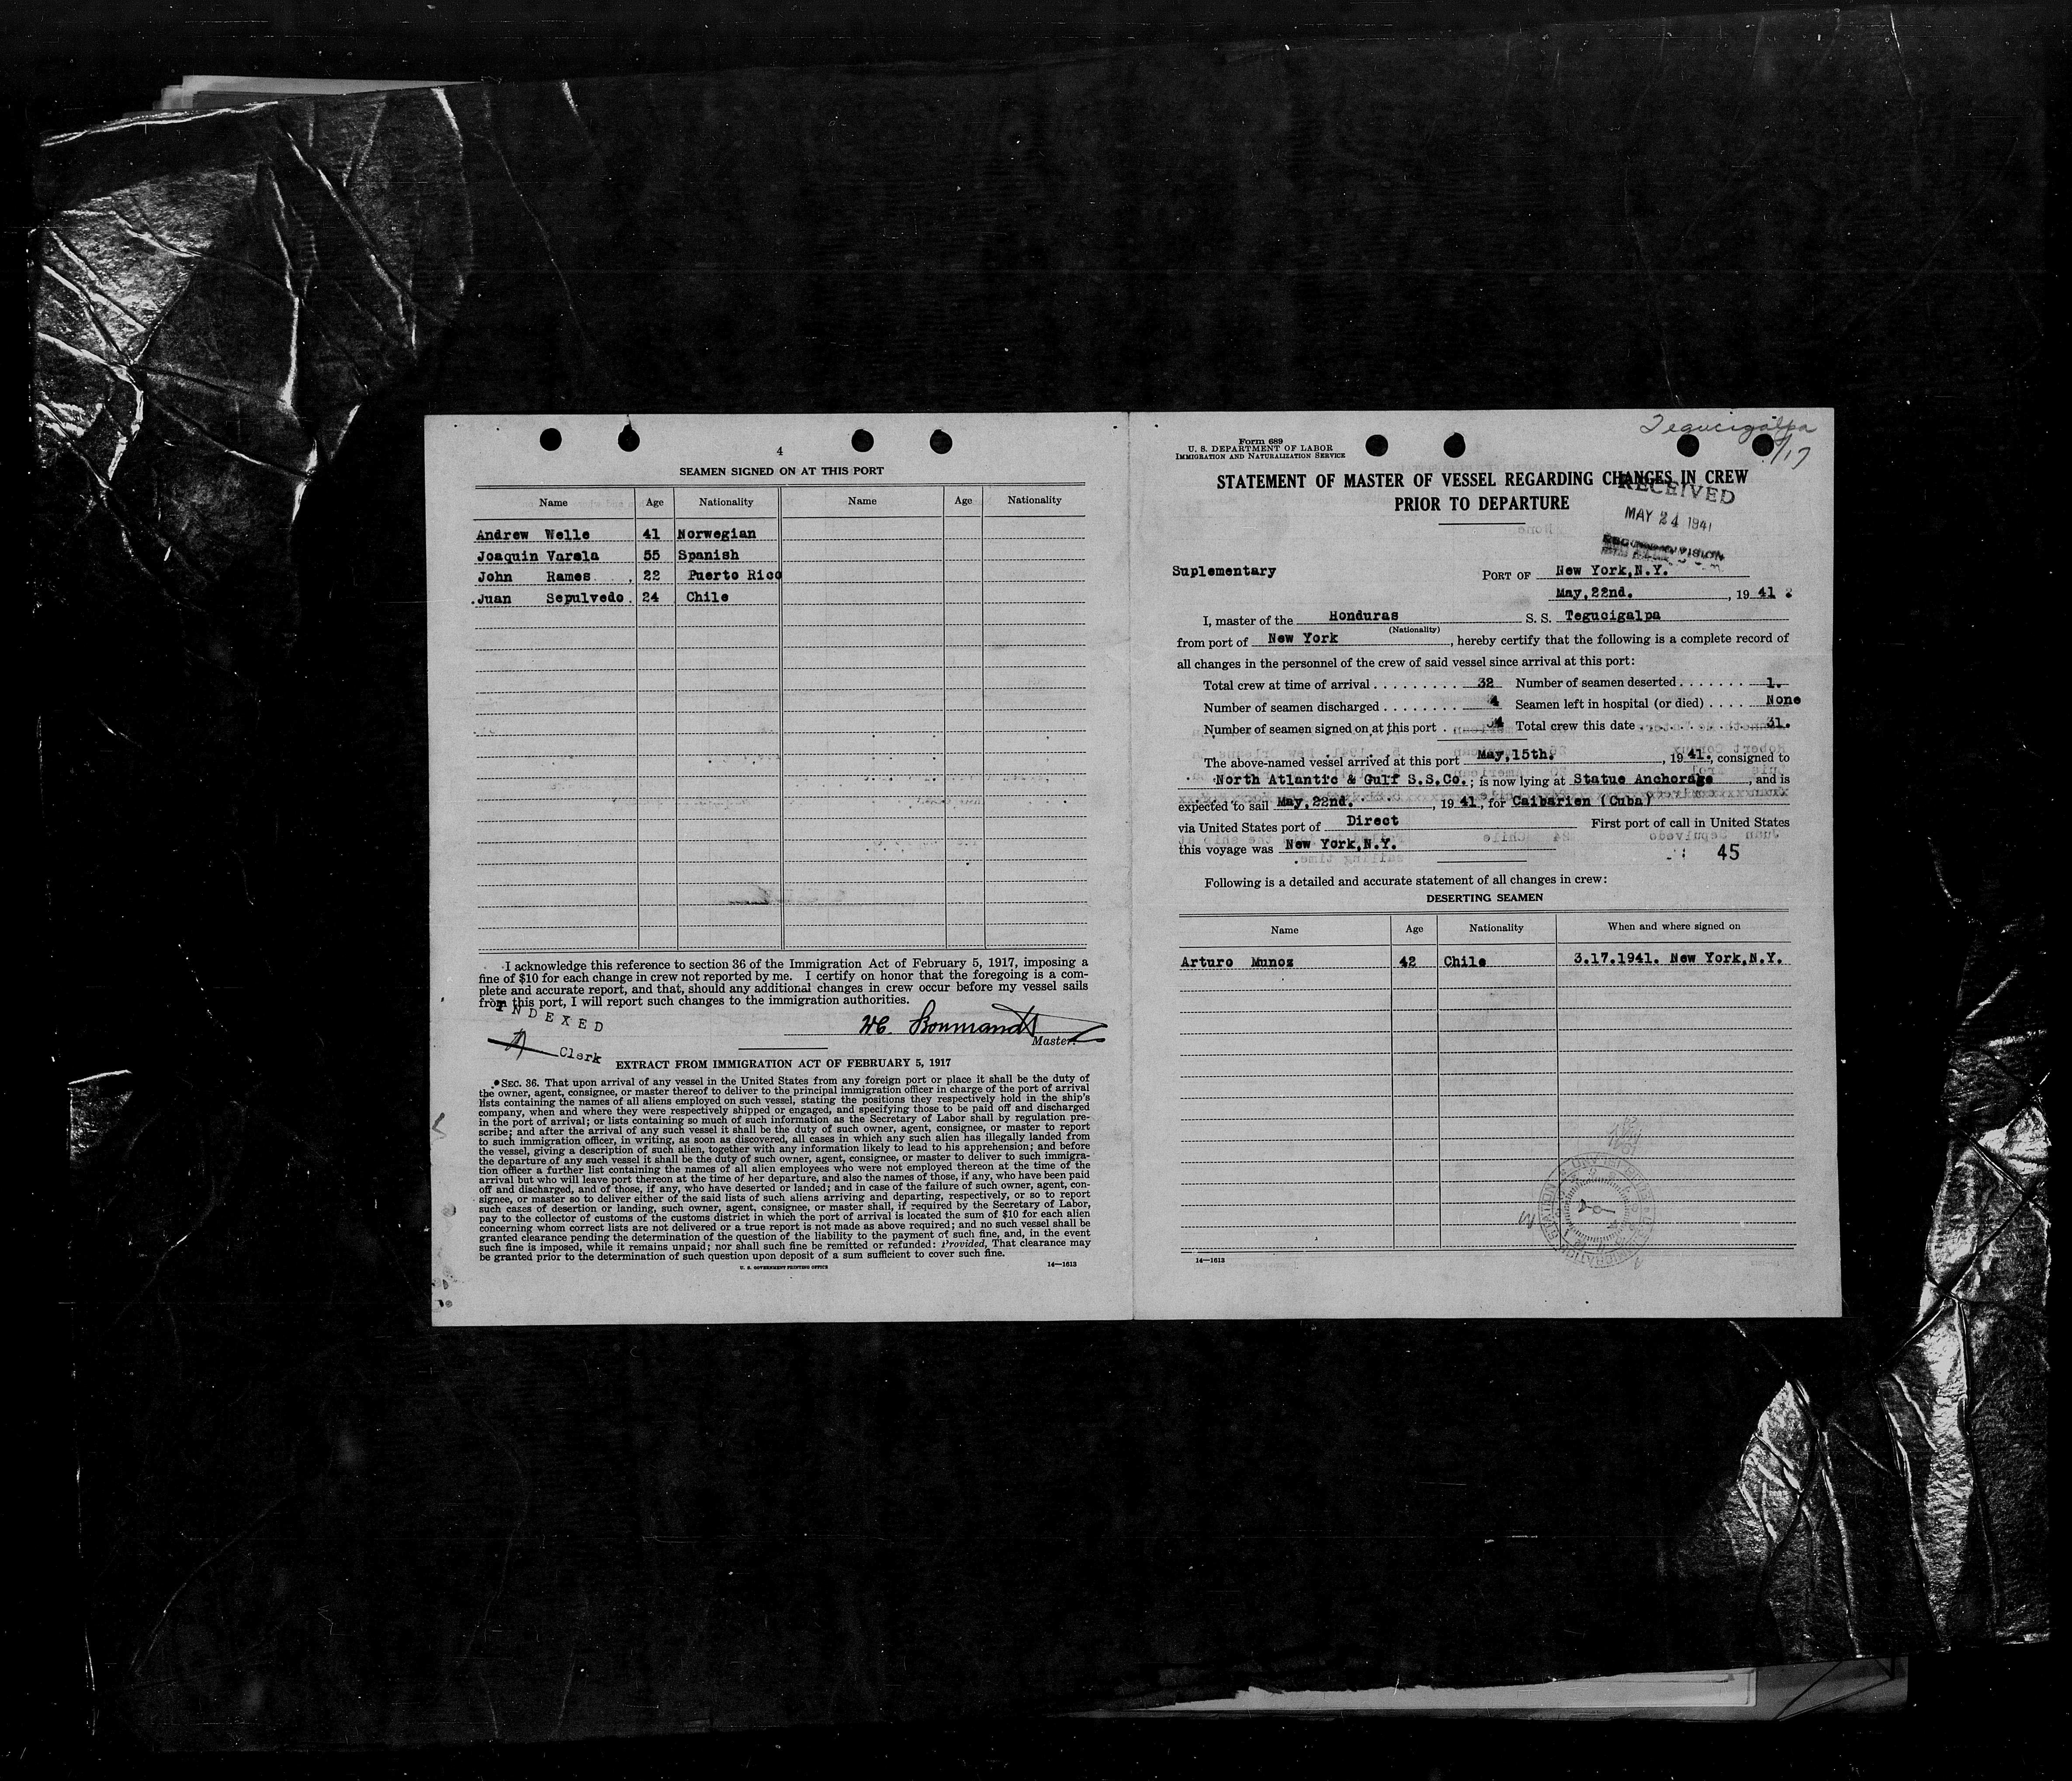 4
SEAMEN SIGNED ON AT THIS PORT
Name Age Nationality Name Age Nationality
Andrew Welle 41 Norwegian
Joaquin Varela 55 Spanish
John Rames 22 Puerto Rico
Juan Sepulvedo 24 Chile
I acknowledge this reference to section 36 of the Immigration Act of February 5, 1917, imposing a
fine of $10 for each change in crew not reported by me. I certify on honor that the foregoing is a com-
plete and accurate report, and that, should any additional changes in crew occur before my vessel sails
from this port, I will report such changes to the immigration authorities.
INDEXED
Clerk
Master.
EXTRACT FROM IMMIGRATION ACT OF FEBRUARY 5, 1917
SEC. 36. That upon arrival of any vessel in the United States from any foreign port or place it shall be the duty of
the owner, agent, consignee, or master thereof to deliver to the principal immigration officer in charge of the port of arrival
lists containing the names of all aliens employed on such vessel, stating the positions they respectively hold in the ship's
company, when and where they were respectively shipped or engaged, and specifying those to be paid off and discharged
in the port of arrival; or lists containing so much of such information as the Secretary of Labor shall by regulation pre-
scribe; and after the arrival of any such vessel it shall be the duty of such owner, agent, consignee, or master to report
to such immigration officer, in writing, as soon as discovered, all cases in which any such alien has illegally landed from
the vessel, giving a description of such alien, together with any information likely to lead to his apprehension; and before
the departure of any such vessel it shall be the duty of such owner, agent, consignee, or master to deliver to such immigra-
tion officer a further list containing the names of all alien employees who were not employed thereon at the time of the
arrival but who will leave port thereon at the time of her departure, and also the names of those, if any, who have been paid
off and discharged, and of those, if any, who have deserted or landed; and in case of the failure of such owner, agent, con-
signee, or master so to deliver either of the said lists of such aliens arriving and departing, respectively, or so to report
such cases of desertion or landing, such owner, agent, consignee, or master shall, if required by the Secretary of Labor,
pay to the collector of customs of the customs district in which the port of arrival is located the sum of $10 for each alien
concerning whom correct lists are not delivered or a true report is not made as above required; and no such vessel shall be
granted clearance pending the determination of the question of the liability to the payment of such fine, and, in the event
such fine is imposed, while it remains unpaid; nor shall such fine be remitted or refunded: Provided, That clearance may
be granted prior to the determination of such question upon deposit of a sum sufficient to cover such fine.
U. S. GOVERNMENT PRINTING OFFICE 14—1613
Tegucigalpa
Form 689
U. S. DEPARTMENT OF LABOR
IMMIGRATION AND NATURALIZATION SERVICE
STATEMENT OF MASTER OF VESSEL REGARDING CHANGES IN CREW
PRIOR TO DEPARTURE
RECEIVED
MAY 24 1941
Suplementary
PORT OF New York,N.Y.
May,22nd. , 19 41
I, master of the Honduras S. S. Tegucigalpa
(Nationality)
from port of New York , hereby certify that the following is a complete record of
all changes in the personnel of the crew of said vessel since arrival at this port:
Total crew at time of arrival 32 Number of seamen deserted 1.
Number of seamen discharged 4 Seamen left in hospital (or died) None
Number of seamen signed on at this port 4 Total crew this date 31.
The above-named vessel arrived at this port May,15th. , 19 41., consigned to
North Atlantic & Gulf S.S.Co.; is now lying at Statue Anchorage , and is
expected to sail May,22nd. , 19 41, for Caibarien (Cuba)
via United States port of Direct First port of call in United States
this voyage was New York,N.Y.
45
Following is a detailed and accurate statement of all changes in crew:
DESERTING SEAMEN
Name Age Nationality When and where signed on
Arturo Munoz 42 Chile 3.17.1941. New York,N.Y.
14—1613